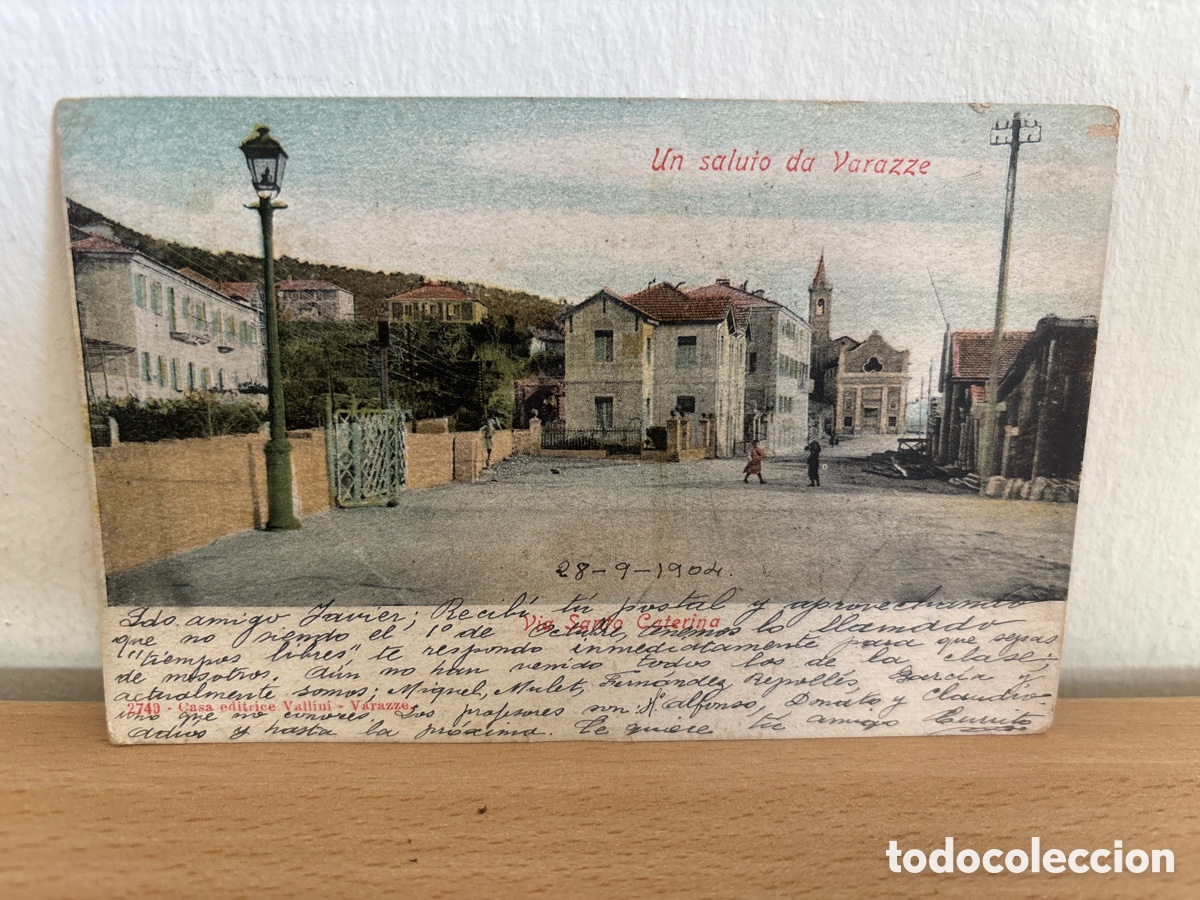 Un saluto da Varazze
28-9-1904.
Ido. amigo Javier; Recibí tú postal y aprovechando
Via Santa Caterina
que no siendo el 1º de Octubre, tenemos lo llamado
"tiempos libres" te respondo inmediatamente para que sepas
de nosotros. Aún no han venido todos los de la clase;
actualmente somos; Miguel, Mulet, Fernández, Repollés, García y
2740 - Casa editrice Vallini - Varazze.
uno que no conoces. Los profesores son: Alfonso, Donato y Claudio.
Adios y hasta la próxima. Te quiere tú amigo Currito
todocoleccion.com